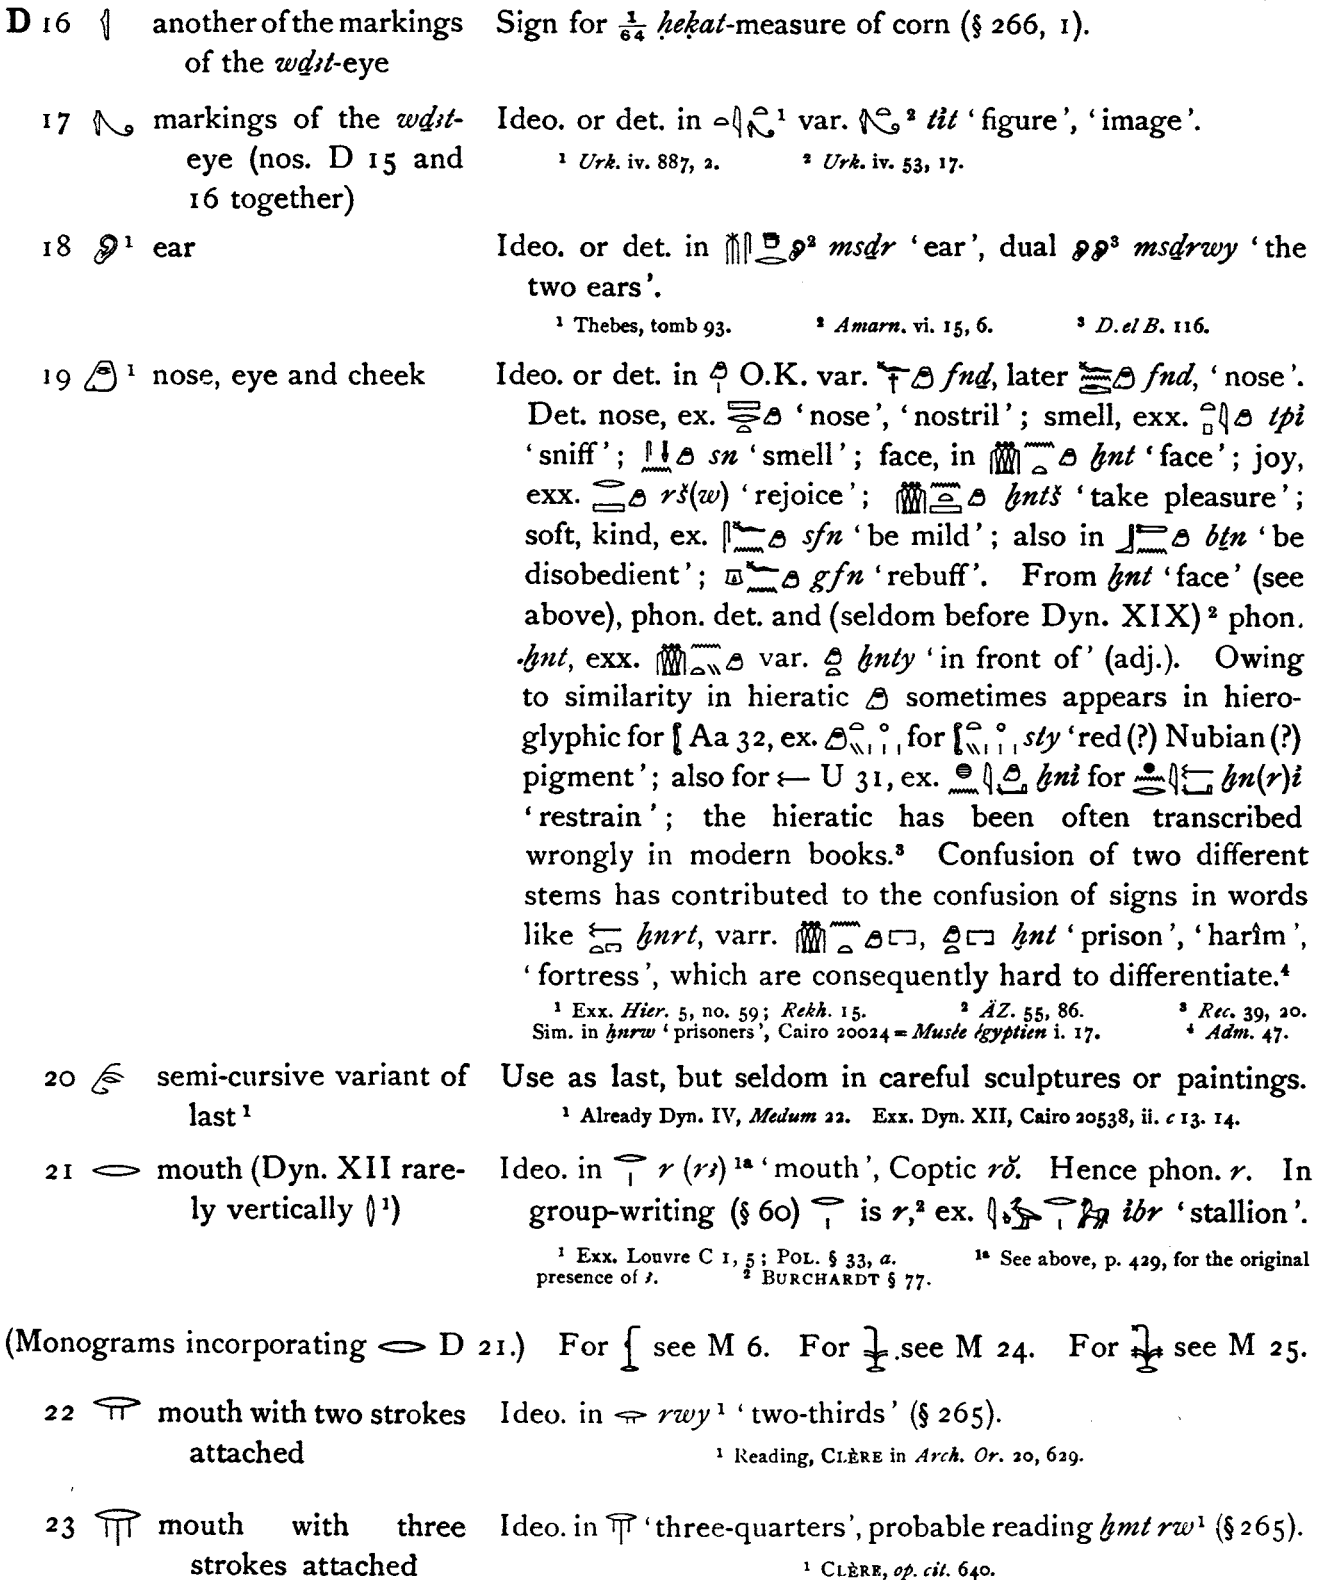 D 16 𓂅 another of the markings Sign for 1/64 ḥeḳat-measure of corn (§ 266, 1).
of the wḏꜣt-eye
17 𓂆 markings of the wḏꜣt- Ideo. or det. in 𓏏𓇋𓏏𓂆¹ var. 𓂆𓏏² tı͗t ‘figure’, ‘image’.
eye (nos. D 15 and ¹ Urk. iv. 887, 2. ² Urk. iv. 53, 17.
16 together)
18 𓂈¹ ear Ideo. or det. in 𓄟𓋴𓆓𓂋𓂈² msḏr ‘ear’, dual 𓂈𓂈³ msḏrwy ‘the
two ears’.
¹ Thebes, tomb 93. ² Amarn. vi. 15, 6. ³ D. el B. 116.
19 𓂉¹ nose, eye and cheek Ideo. or det. in 𓂉𓏤 O.K. var. 𓂉 fnḏ, later 𓂉 fnd, ‘nose’.
Det. nose, ex. 𓂉 ‘nose’, ‘nostril’; smell, exx. 𓏏𓊪𓇋𓂉 tpı͗
‘sniff’; 𓂉 sn ‘smell’; face, in 𓏃𓈖𓏏𓂉 ḫnt ‘face’; joy,
exx. 𓂋𓈙𓂉 rš(w) ‘rejoice’; 𓏃𓈖𓏏𓈙𓂉 ḫntš ‘take pleasure’;
soft, kind, ex. 𓋴𓆑𓈖𓂉 sfn ‘be mild’; also in 𓃀𓍿𓈖𓂉 bṯn ‘be
disobedient’; 𓎼𓆑𓈖𓂉 gfn ‘rebuff’. From ḫnt ‘face’ (see
above), phon. det. and (seldom before Dyn. XIX)² phon.
ḫnt, exx. 𓏃𓈖𓏏𓏭𓂉 var. 𓂉𓏏 ḫnty ‘in front of’ (adj.). Owing
to similarity in hieratic 𓂉 sometimes appears in hiero-
glyphic for 𓐮 Aa 32, ex. 𓂉𓏏𓏭 for 𓐮𓏏𓏭 sty ‘red (?) Nubian (?)
pigment’; also for 𓍕 U 31, ex. 𓐍𓈖𓇋𓂉 ḫnı͗ for 𓐍𓈖𓂋𓇋𓍕 ḫn(r)ı͗
‘restrain’; the hieratic has been often transcribed
wrongly in modern books.³ Confusion of two different
stems has contributed to the confusion of signs in words
like 𓍕𓏏𓉐 ḫnrt, varr. 𓏃𓈖𓏏𓂉𓉐, 𓂉𓏏𓉐 ḫnt ‘prison’, ‘harîm’,
‘fortress’, which are consequently hard to differentiate.⁴
¹ Exx. Hier. 5, no. 59; Rekh. 15. ² ÄZ. 55, 86. ³ Rec. 39, 20.
Sim. in ḫnrw ‘prisoners’, Cairo 20024 = Musée égyptien i. 17. ⁴ Adm. 47.
20 𓂊 semi-cursive variant of Use as last, but seldom in careful sculptures or paintings.
last¹ ¹ Already Dyn. IV, Medum 22. Exx. Dyn. XII, Cairo 20538, ii. c 13. 14.
21 𓂋 mouth (Dyn. XII rare- Ideo. in 𓂋𓏤 r (rꜣ)¹ᵃ ‘mouth’, Coptic rŏ. Hence phon. r. In
ly vertically ¹) group-writing (§ 60) 𓂋𓏤 is r,² ex. ı͗br ‘stallion’.
¹ Exx. Louvre C 1, 5; POL. § 33, a. ¹ᵃ See above, p. 429, for the original
presence of ꜣ. ² BURCHARDT § 77.
(Monograms incorporating 𓂋 D 21.) For 𓆵 see M 6. For 𓇖 see M 24. For 𓇘 see M 25.
22 𓂌 mouth with two strokes Ideo. in 𓂌 rwy¹ ‘two-thirds’ (§ 265).
attached ¹ Reading, CLÈRE in Arch. Or. 20, 629.
23 𓂍 mouth with three Ideo. in 𓂍 ‘three-quarters’, probable reading ḫmt rw¹ (§ 265).
strokes attached ¹ CLÈRE, op. cit. 640.